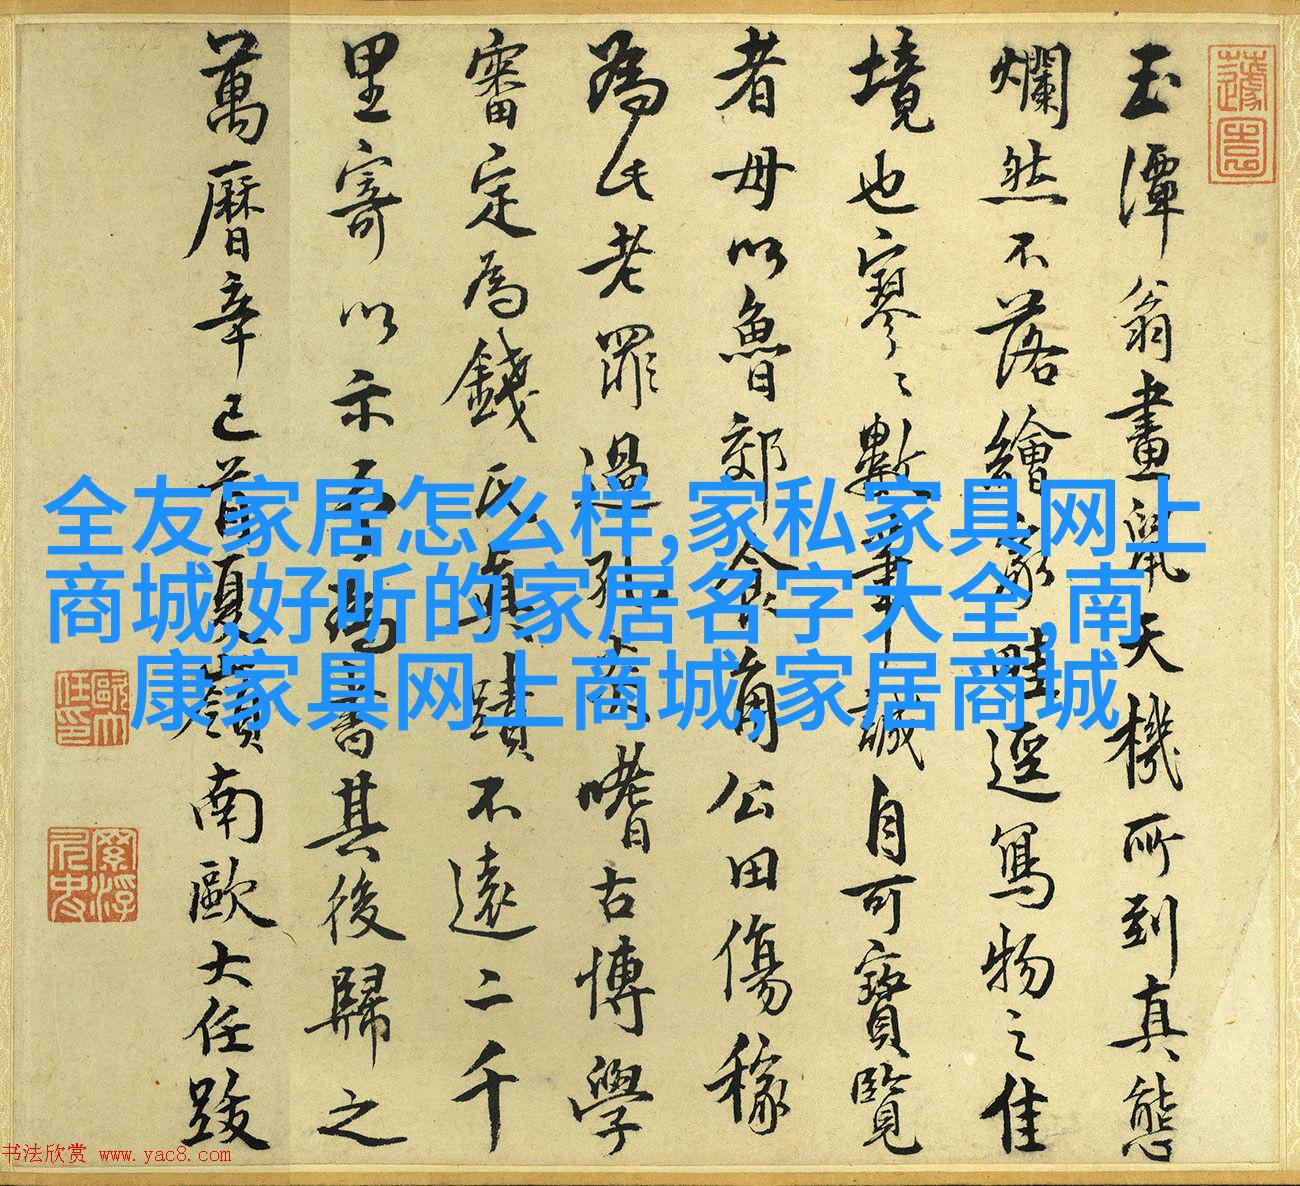 玉潭翁畫鼠天機所到真態
爛然不落繪家畦逕寫物之佳
境也寥寥數筆誠自可寶覽
者毋以魯郊食角公田傷稼
為氏老罪過耶嗜古博學
審定為錢氏真蹟不遠二千
里寄以示予為書其後歸之
萬曆辛巳首夏嶺南歐大任跋
全友家居怎么样,家私家具网上
商城,好听的家居名字大全,南
康家具网上商城,家居商城
书法欣赏 www.yac8.com